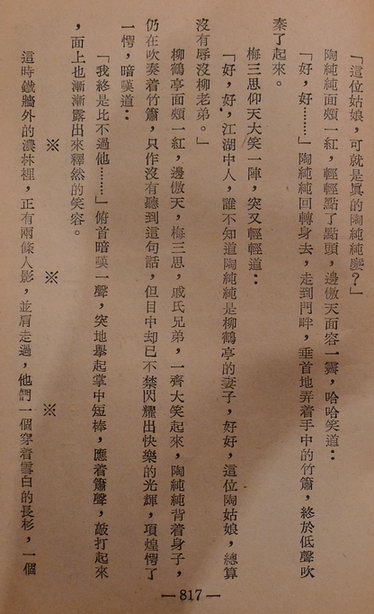 「這位姑娘，可就是眞的陶純純麼？」
陶純純面頰一紅，輕輕點了點頭，邊傲天面容一霽，哈哈笑道：
「好，好……」陶純純回轉身去，走到門畔，垂首地弄着手中的竹簫，終於低聲吹
奏了起來。
梅三思仰天大笑一陣，突又輕輕道：
「好，好，江湖中人，誰不知道陶純純是柳鶴亭的妻子，好好，這位陶姑娘，總算
沒有辱沒柳老弟。」
柳鶴亭面頰一紅，邊傲天，梅三思，戚氏兄弟，一齊大笑起來，陶純純背着身子，
仍在吹奏着竹簫，只作沒有聽到這句話，但目中却已不禁閃耀出快樂的光輝，項煌愕了
一愕，暗嘆道：
「我終是比不過他……」俯首暗嘆一聲，突地擧起掌中短棒，應着簫聲，敲打起來
，面上也漸漸露出來釋然的笑容。
※　※　※
這時鐵牆外的濃林裡，正有兩條人影，並肩走過，他們一個穿着雪白的長衫，一個
—817—